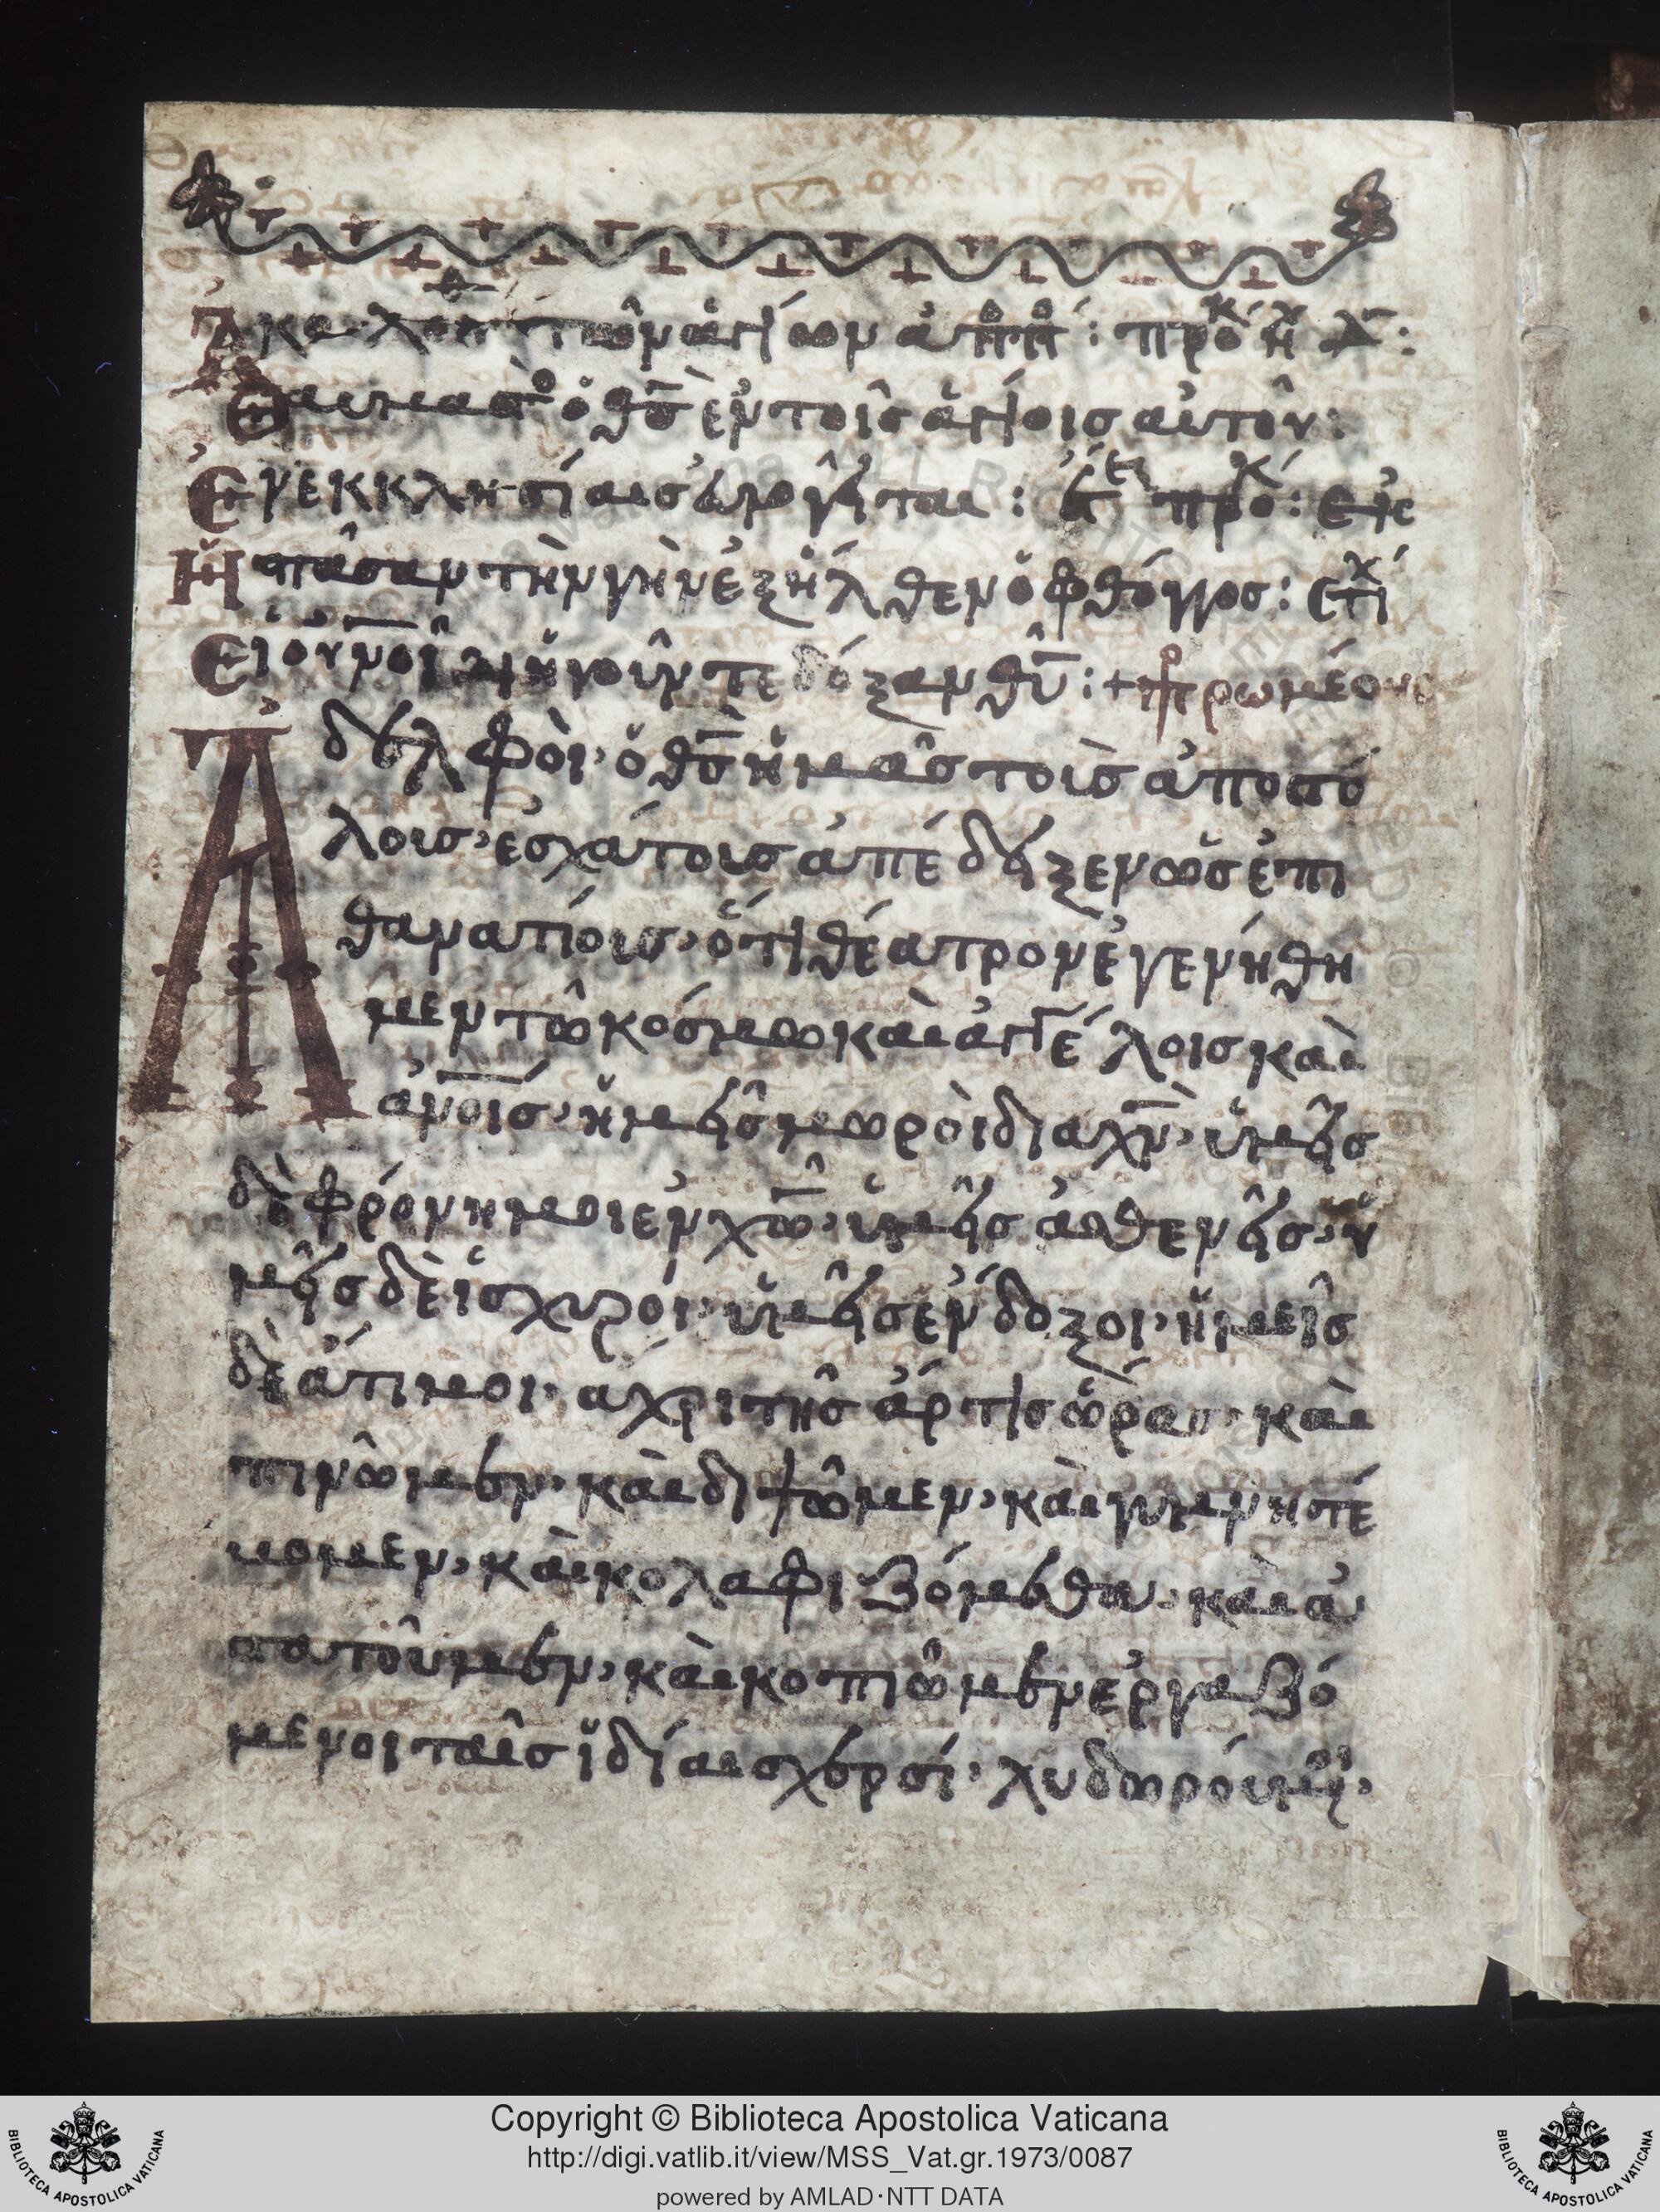 Ἀκολου τῶν ἁγίων ἀππ: προκ ἠχ δ:
Θαυμαστ ὁ θς ἐν τοῖς ἁγίοις αὐτοῦ:
Ἐν ἐκκλησίαις εὐλογεῖται: προκ: Εἰς
πᾶσαν τὴν γῆν ἐξῆλθεν ὁ φθόγγος: στιχ
οἱ οὐνοὶ διηγοῦντε δόξαν θῦ: +πρ ρωμέους
Ἀδελφοὶ· ὁ θς ἡμᾶς τοὶς ἀποστό
λοις, ἐσχάτοις ἀπέδειξεν ὡς ἐπι
θανατίοις, ὅτι θέατρον ἐγενήθη
μεν τῶ κόσμω καὶ ἀγγέλοις καὶ
ἀνοις, ἡμεῖς μωροὶ διὰ χν, ὑμεῖς
δὲ φρόνημοι ἐν χω, ὑμεῖς ἀσθενεῖς, ὑ
μεῖς δὲ ἰσχυροί· ὑμεῖς ἔνδοξοι, ἡμεῖς
δὲ ἄτιμοι· αχρι τῆς ἄρτι ὥρας, καὶ
πινῶμεν, καὶ διψῶμεν, καὶ γυμνητέ
υομεν, καὶ κολαφιζόμεθα, καὶ ἀ
στατοῦμεν, καὶ κοπιῶμεν ἐργαζό
μενοι ταῖς ἰδίαις χερσί· λυδωρόυμ,
Copyright © Biblioteca Apostolica Vaticana
http://digi.vatlib.it/view/MSS_Vat.gr.1973/0087
powered by AMLAD·NTT DATA
BIBLIOTECA APOSTOLICA VATICANA
BIBLIOTECA APOSTOLICA VATICANA